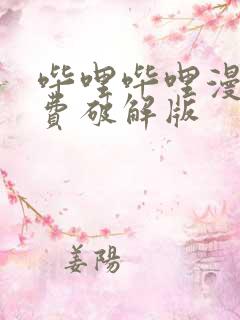 哔哩哔哩漫
费破解版
姜阳